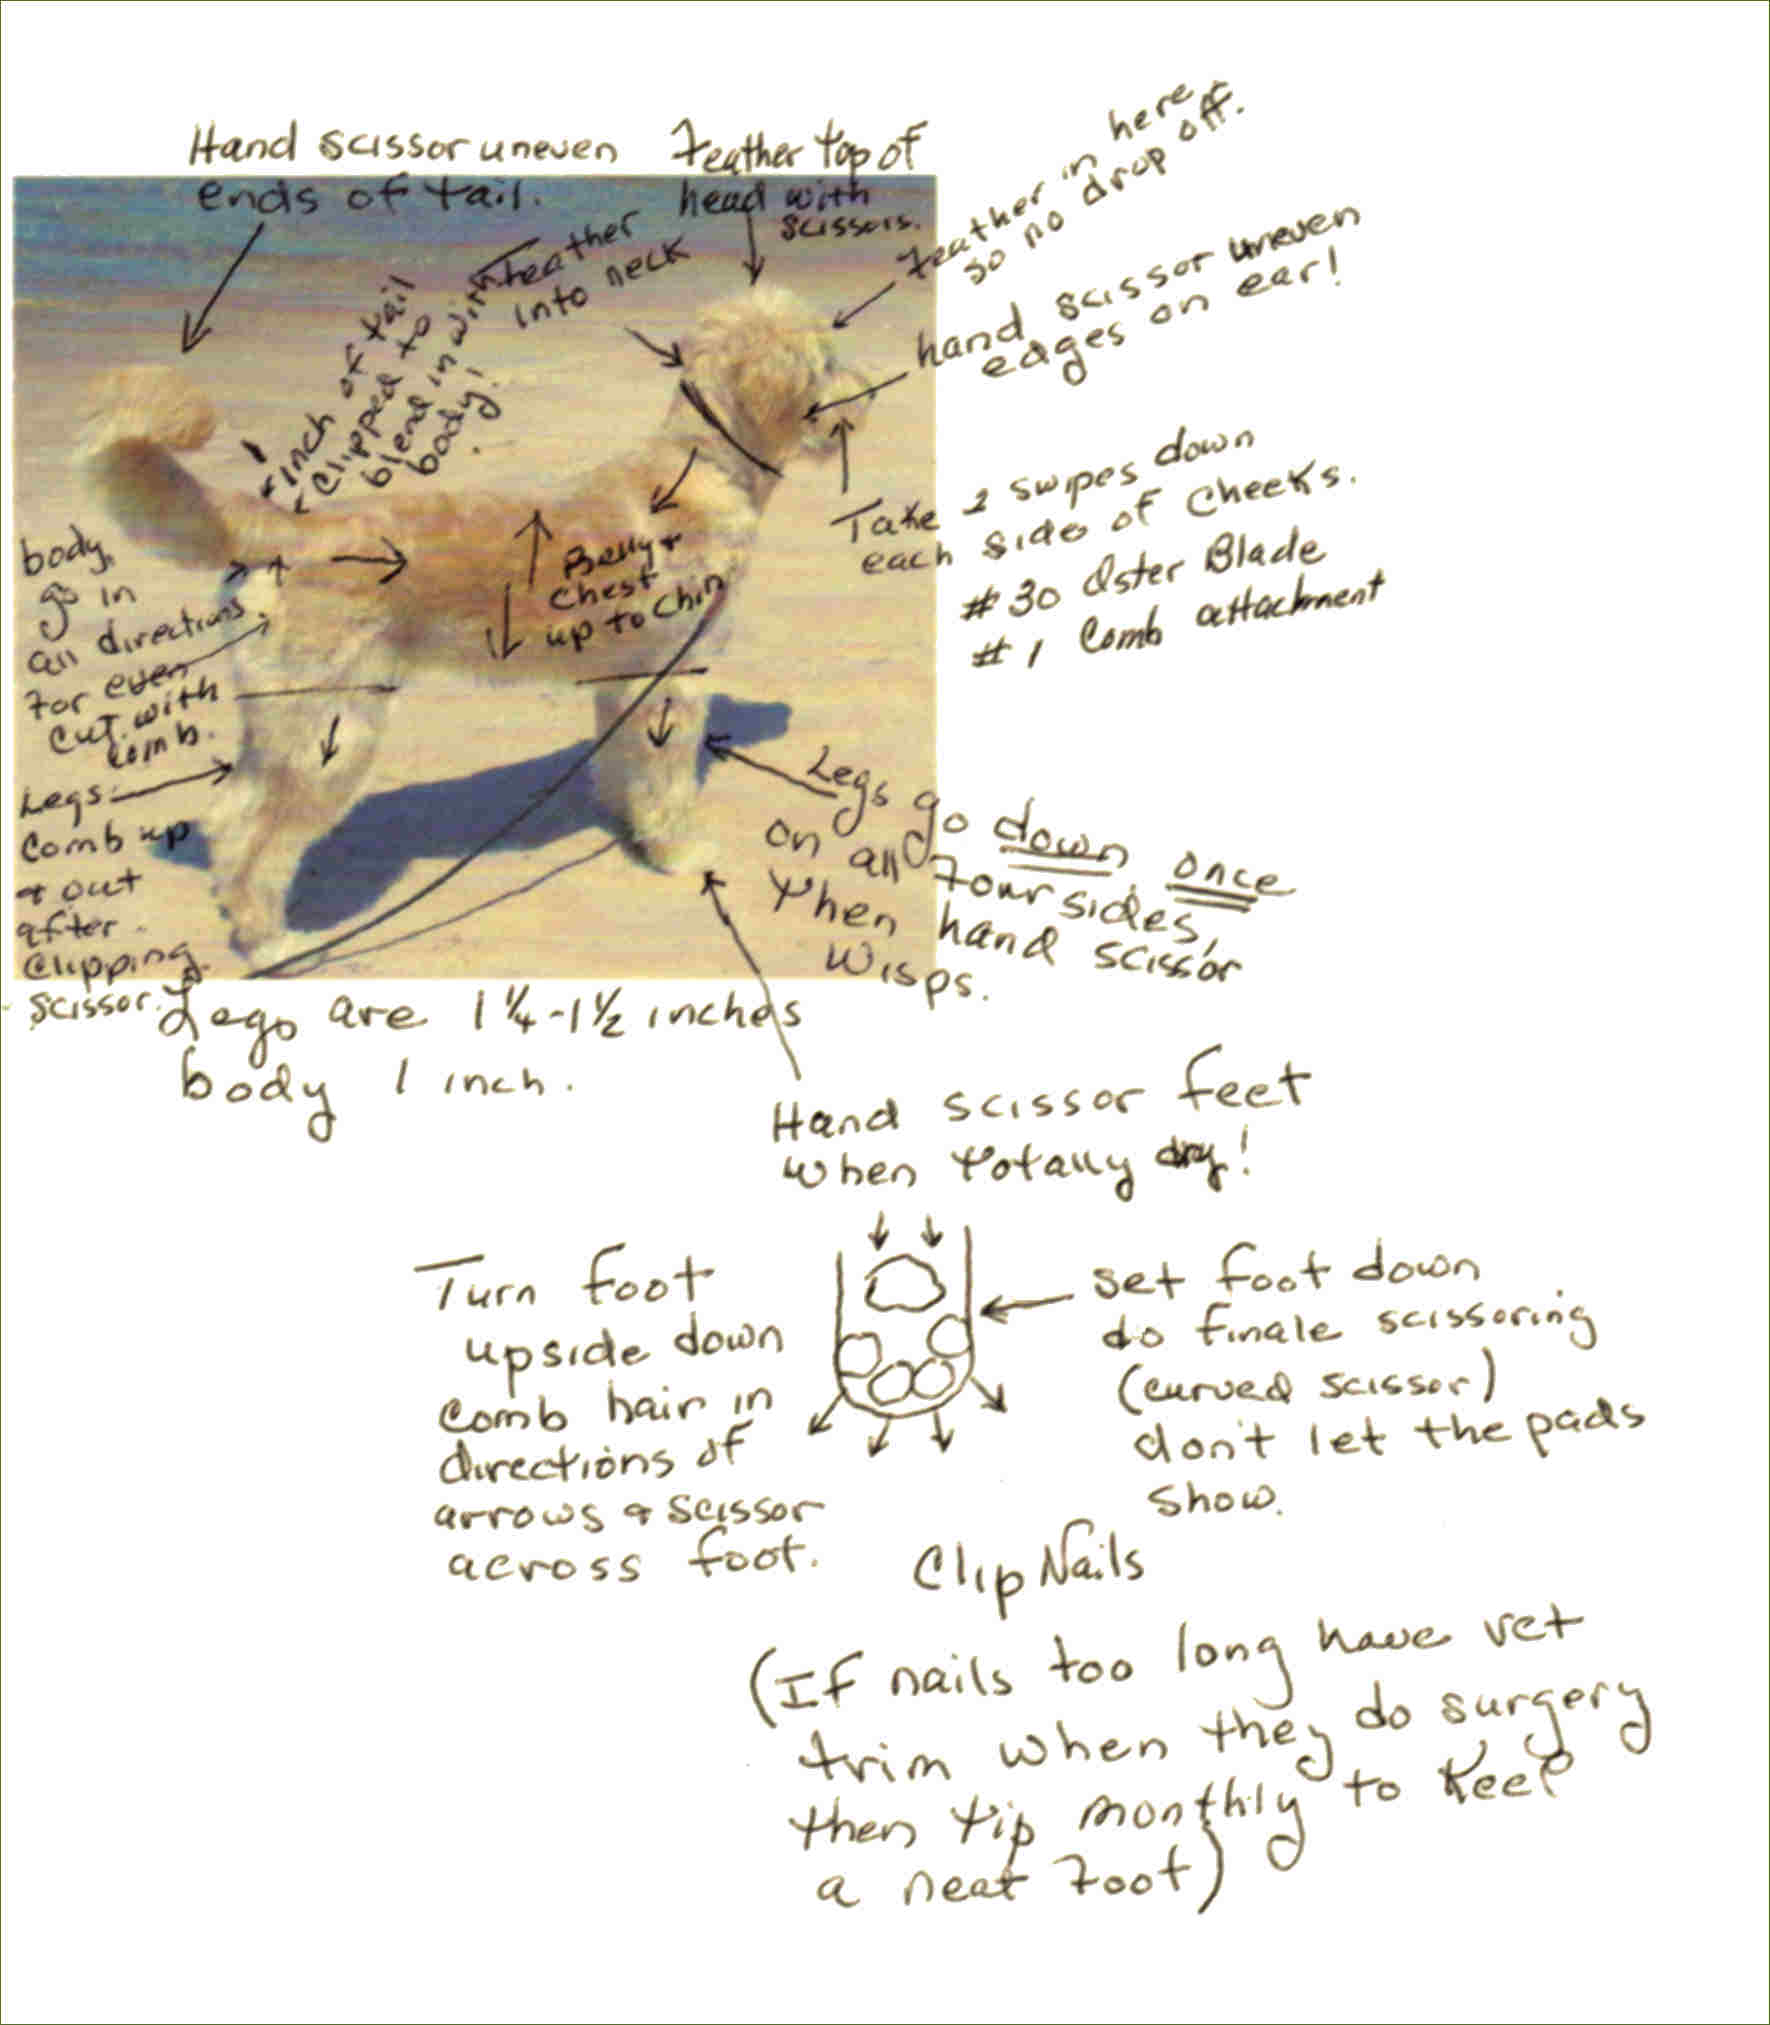 Hand scissor uneven
ends of tail.
Feather top of
head with
scissors.
Feather in here
so no drop off.
hand scissor uneven
edges on ear!
Feather
into neck
1 inch of tail
clipped to
blend in with
body!
Take 2 swipes down
each side of cheeks.
#30 Oster Blade
#1 Comb attachment
Belly &
chest
up to chin
body
go in
all directions
for even
cut with
comb.
Legs
comb up
& out
after
clipping
scissor.
Legs go down once
on all four sides,
then hand scissor
wisps.
Legs are 1 1/4 - 1 1/2 inches
body 1 inch.
Hand scissor feet
when totally dry!
Turn foot
upside down
comb hair in
directions of
arrows & scissor
across foot.
set foot down
do finale scissoring
(curved scissor)
don't let the pads
show.
Clip Nails
(If nails too long have vet
trim when they do surgery
then tip monthly to keep
a neat foot)